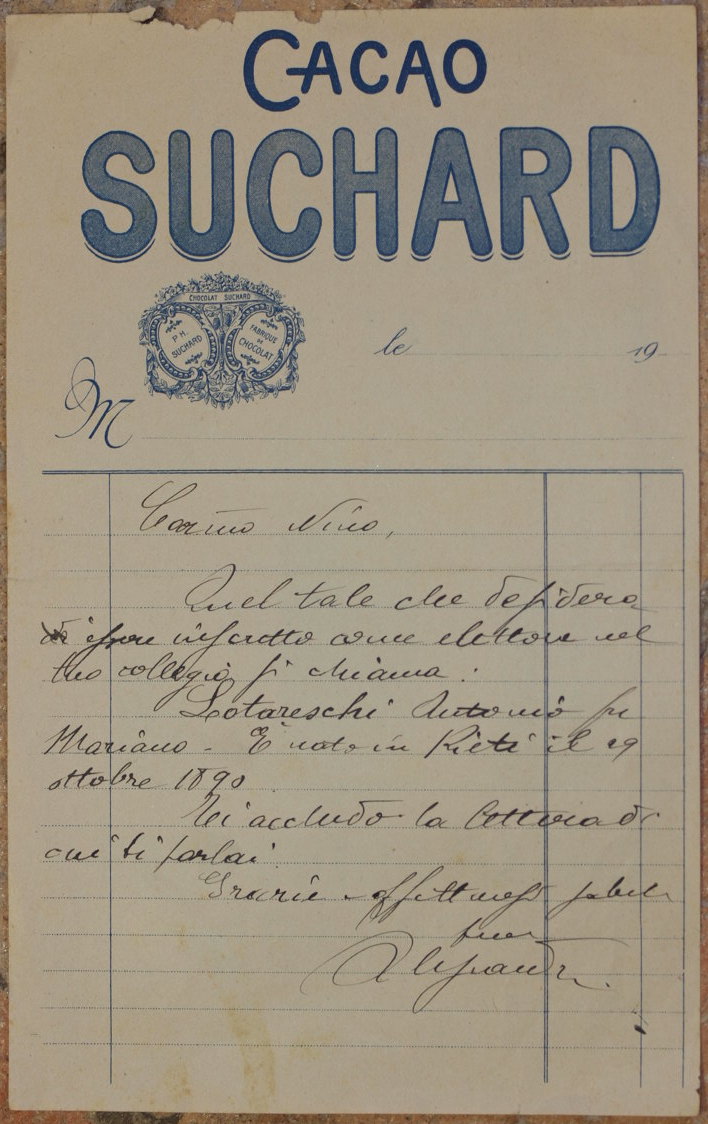 CACAO
SUCHARD
CHOCOLAT SUCHARD
PH.
SUCHARD
FABRIQUE
DE
CHOCOLAT
le 19
M
Carino Nino,
Quel tale che desidera
di essere inscritto come elettore nel
tuo collegio si chiama :
Lotareschi Antonio fu
Mariano - E' nato in Rieti il 29
ottobre 1890
Ti accludo la lettera di
cui ti parlai.
Grazie affettuosi saluti
tuo
Alessandro